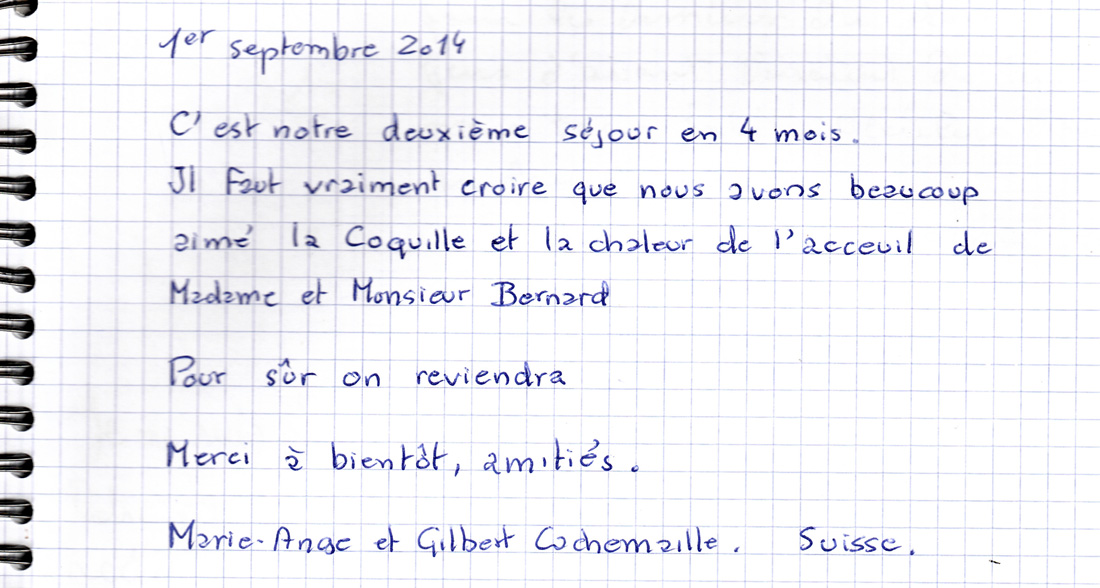 1er septembre 2014
C'est notre deuxième séjour en 4 mois.
Il faut vraiment croire que nous avons beaucoup
aimé la Coquille et la chaleur de l'acceuil de
Madame et Monsieur Bernard
Pour sûr on reviendra
Merci à bientôt, amitiés.
Marie-Ange et Gilbert Cochemaille. Suisse.